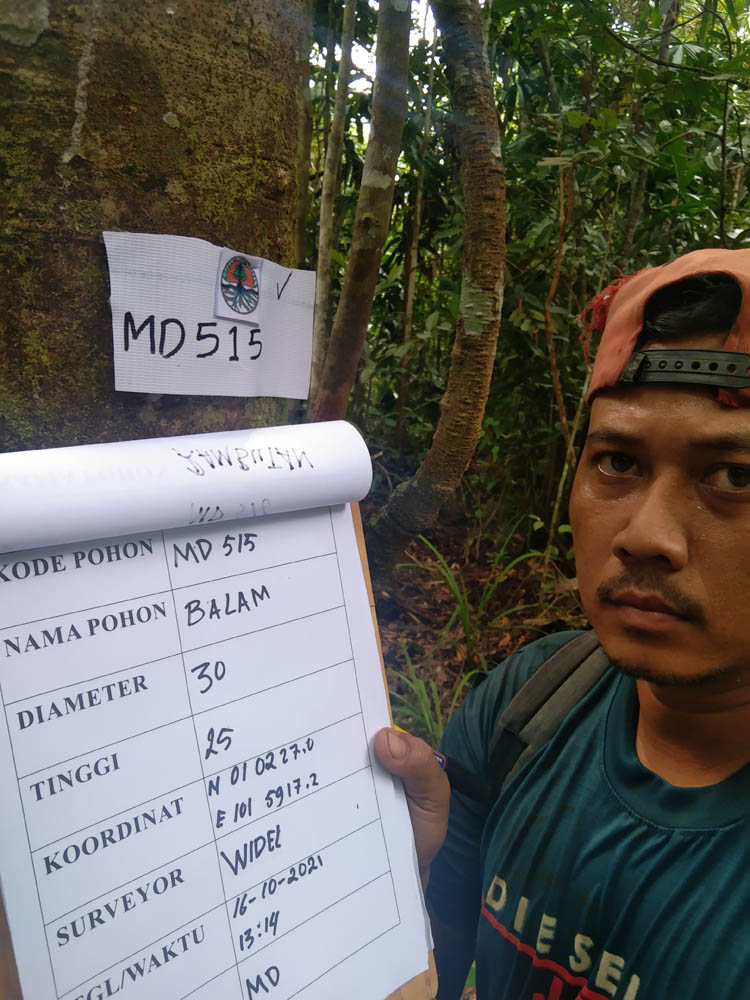 MD515
RAMBUTAN
KODE POHON MD 515
NAMA POHON BALAM
DIAMETER 30
TINGGI 25
KOORDINAT N 01 02 27.0
E 101 59 17.2
SURVEYOR WIDEL
TGL/WAKTU 16-10-2021
13:14
MD
DIESEL